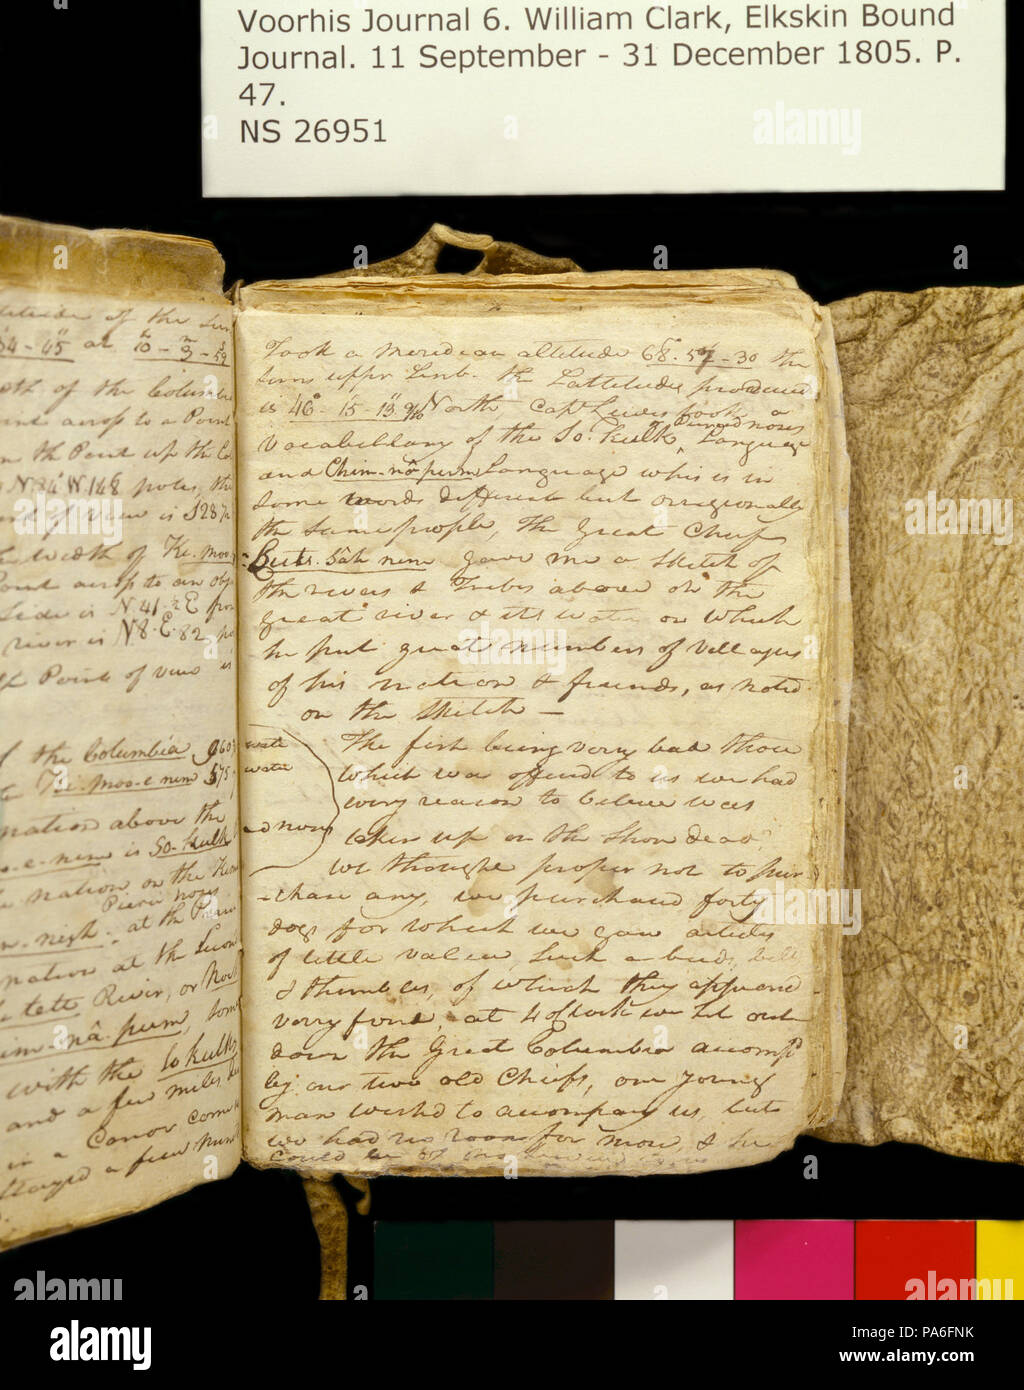 Voorhis Journal 6. William Clark, Elkskin Bound
Journal. 11 September - 31 December 1805. P.
47.
NS 26951
titude of the Sun
34-45 at 10-9-59
of the Columbia
across to a Point
the Point up the
N 84 W 148 poles, the
of view is S 28
width of Ki-moo
Point across to an obj
Side is N. 41 1/2 E from
river is N 8. E. 82 po
Point of view is
the Columbia 960
Ki-moo-e nem 575
nation above the
e-nem is So-kulk
nation on the Kim
Pierce noses
at the
nation at the
tett River, or
im-nâ-pum, some
with the So kulks
and a few miles
in a Canoe came
Stayed a few
Took a Meridean altitude 68-57-30 the
Suns upper Limb. the Lattitude produced
is 46°-15'-13 9/10 North Capt Lewis took a
Vocabillary of the So-kulk or Pierced noses Language
and Chim-nâ-pum Language whic is in
Some words different but orrigionally
the Same people, The Great Chief
Cuts-Sâh nem gave me a Sketch of
the rivers & Tribes above on the
great river & its waters on which
he put great numbers of Villages
of his nation & friends, as noted
on the Sketch —
wate
water
The fish being very bad those
which was offerd to us we had
every reason to believe was
taken up on the Shore dead
we thought proper not to pur-
chase any, we purchased forty
dogs for which we gave articles
of little value, Such as beeds, bells
& thimbles, of which they appeard
verry fond, at 4 oClock we Set out
down the Great Columbia accompd
by our two old Chiefs, one young
man wished to accompany us, but
we had no room for more, & he
could be of no
alamy
a
Image ID: PA6FNK
www.alamy.com